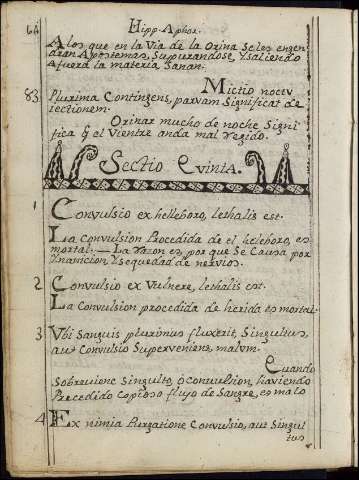 64 Hipp. Aphor.
Alos que en la Via de la Orina Seles engen
dran Apostemas, Supurandose, Ysaliendo
afuera la materia Sanan.
83 Mictio noctu
Plurima Contingens, parvam Significat de
iectionem.
Orinar mucho de noche Signi
fica q̃ el Vientre anda mal regido.
Sectio Quinta.
1 Convulsio ex helleboro, lethalis est.
La Convulsion Procedida de el heleboro, es
mortal. — La razon es, por que Se Causa por
Ynanicion, Ysequedad de nervios.
2 Convulsio ex Vulnere, lethalis est.
La Convulsion procedida de herida es mortal.
3 Vbi Sanguis plurimus fluxerit, Singultus,
aut Convulsio Superveniens, malum.
Quando
Sobreviene Singulto, o convulsion, haviendo
Precedido Copioso flujo de Sangre, es malo
4 Ex nimia Purgatione Convulsio, aut Singul
tus